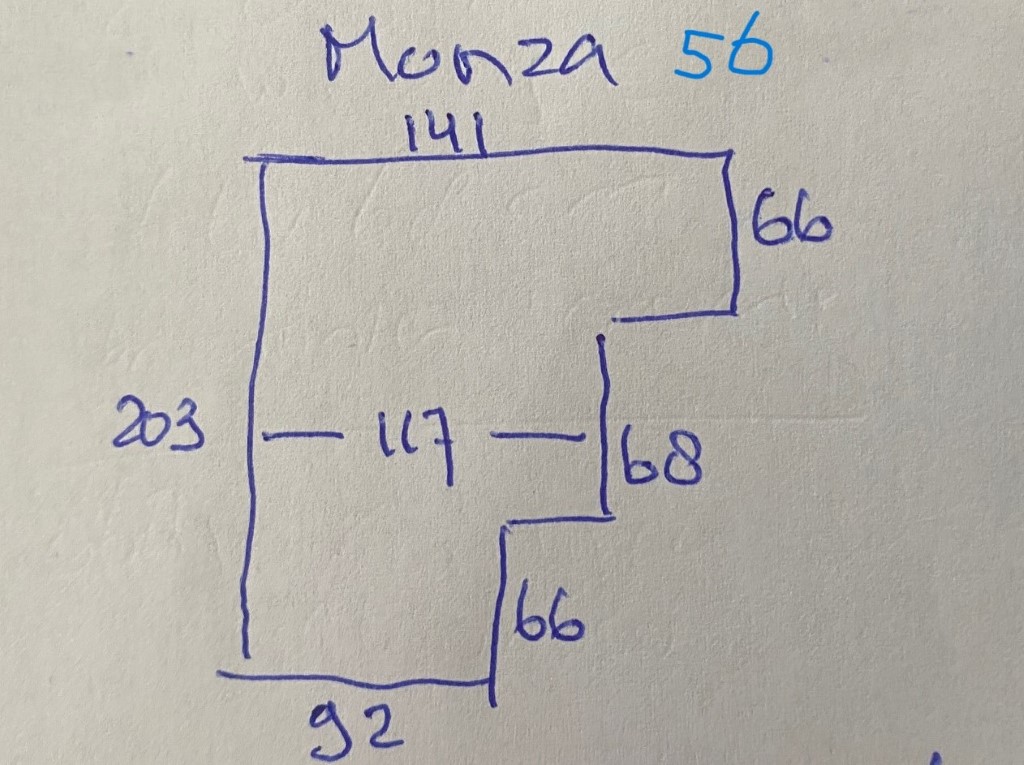 Monza 56
141
66
203
117
68
66
92